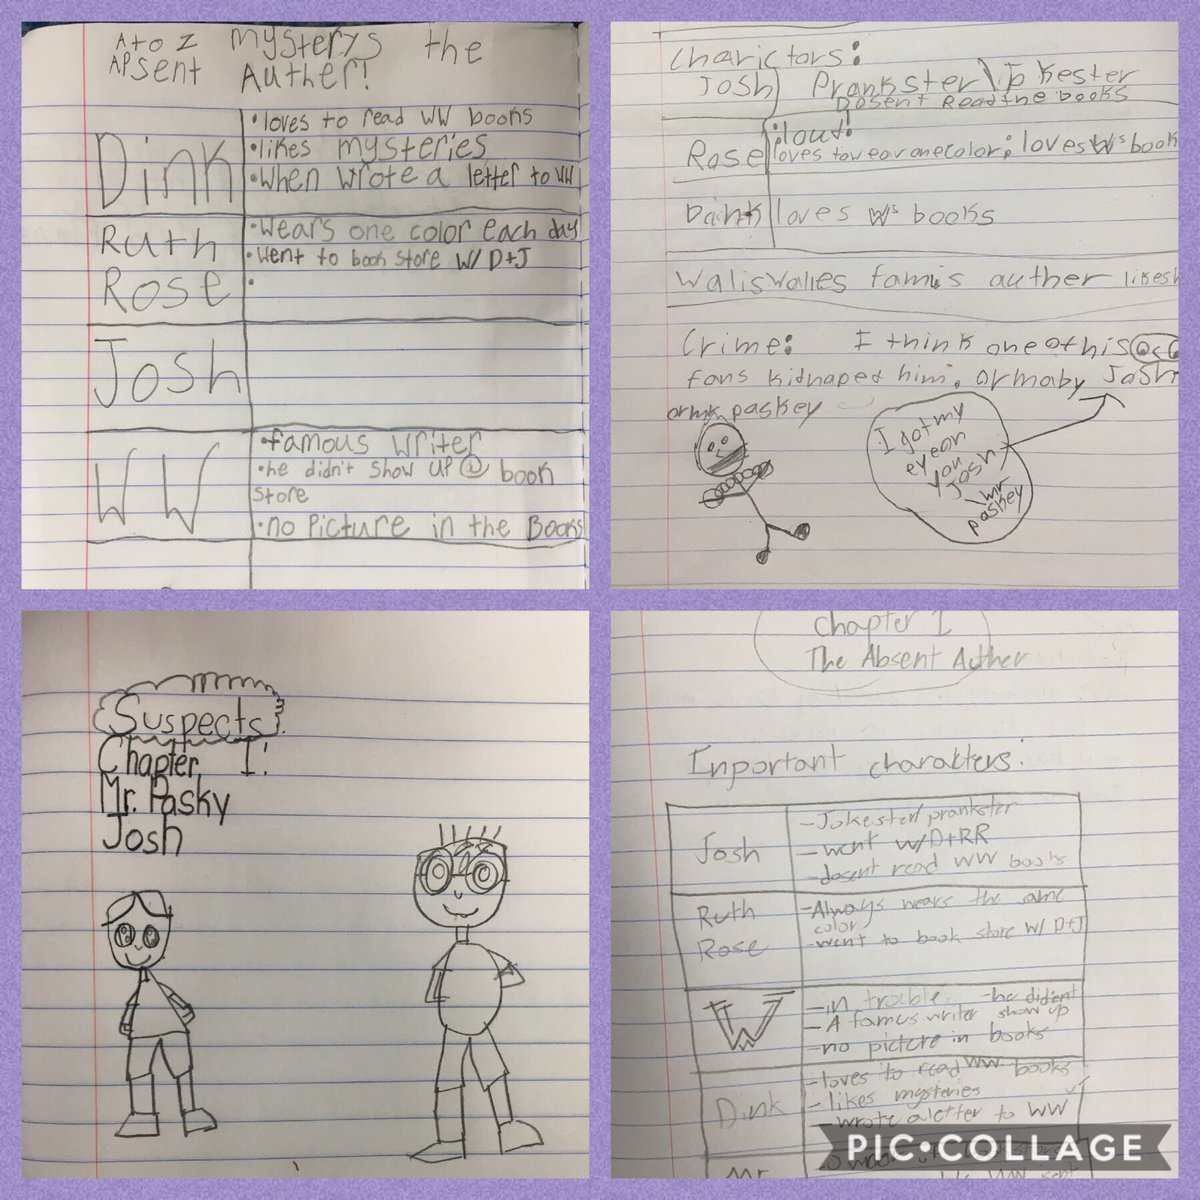 A to Z Mysterys the
APsent Auther!
Dink
•loves to read WW books
•likes mysteries
•When wrote a letter to WW
Ruth
Rose
•Wears one color each day
•Went to book store W/ D+J
Josh
WW
•famous writer
•he didn't show up @ book
store
•no Picture in the Books
Charictors:
Josh Prankster\Jokester
Dosent Read the books
Rose
:loud!
loves to wear one color; loves W's book
Dink loves W's books
Walis Walles famis auther likes
Crime: I think one of his
fans kidnaped him. or maby Josh
or mr. paskey
I got my
eye on
you
Josh
\mr
paskey
Suspects:
Chapter 1:
Mr. Pasky
Josh
Chapter 1
The Absent Auther
Inportant charakters:
Josh
-Jokester/prankster
-went W/D+RR
-dosent read WW books
Ruth
Rose
-Always wears the same
color
-went to book store W/ D+J
W
-in trouble -he did'ent
-A famus writer show up
-no picture in books
Dink
-loves to read WW books
-likes mysteries
-wrote a letter to WW
Mr
PIC•COLLAGE